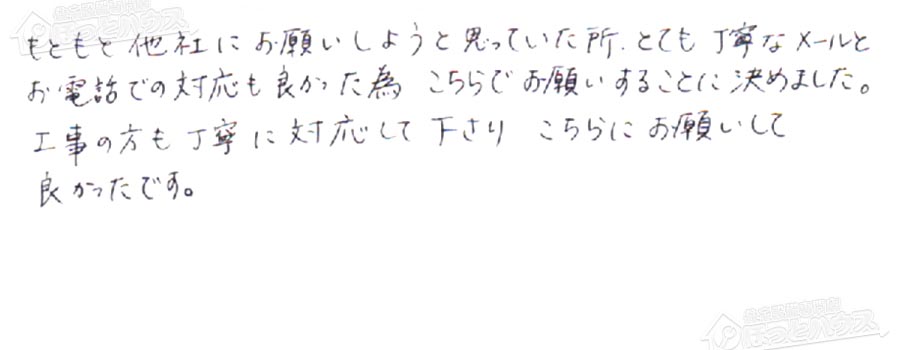 もともと他社にお願いしようと思っていた所、とても丁寧なメールと
お電話での対応も良かった為 こちらでお願いすることに決めました。
工事の方も丁寧に対応して下さり こちらにお願いして
良かったです。
ほっとハウス